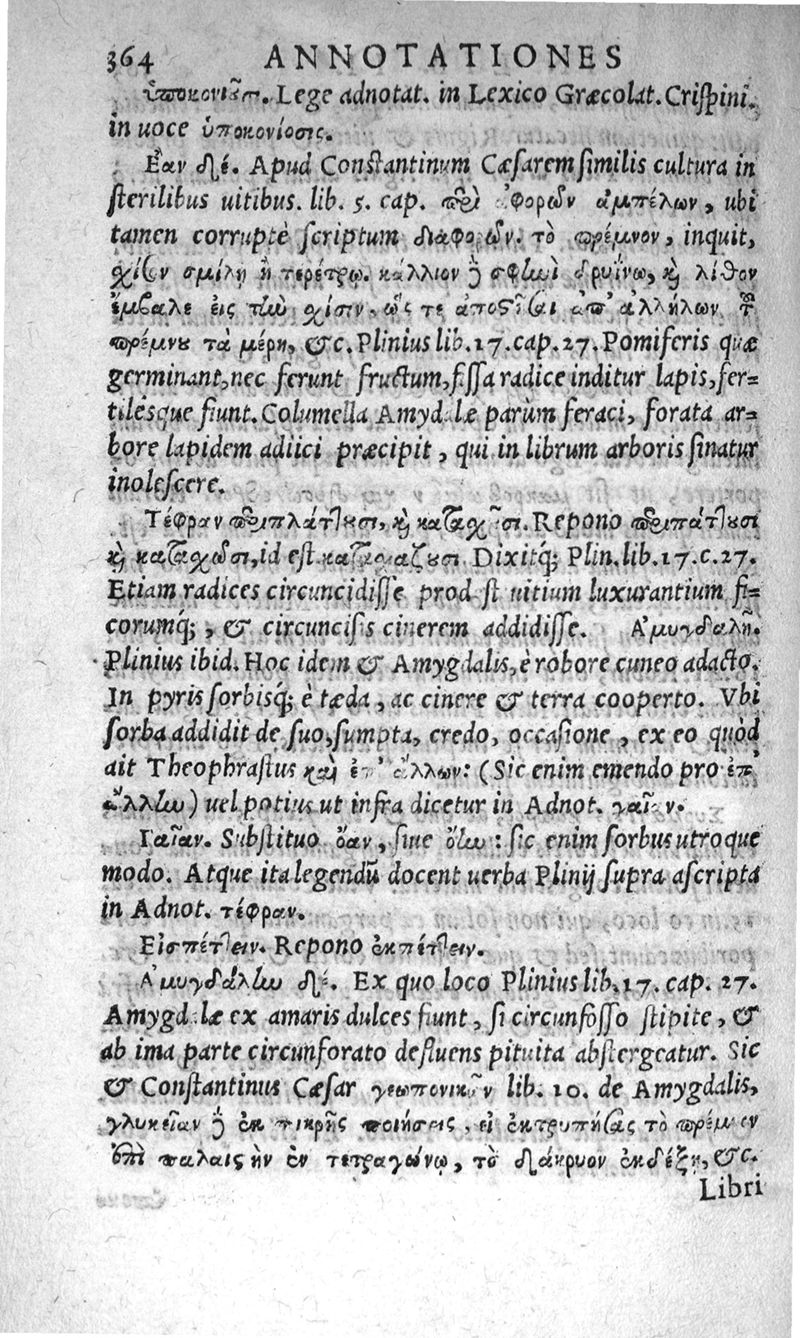 364 ANNOTATIONES
ὑποκονιῶσι. Lege adnotat. in Lexico Græcolat. Criſpini.
in uoce ὑποκονίοσις.
Εὰν δέ. Apud Conſtantinum Cæſarem ſimilis cultura in
ſterilibus uitibus. lib. 5. cap. περὶ ἀφορῶν ἀμπέλων, ubi
tamen corruptè ſcriptum διαφορῶν. τὸ πρέμνον, inquit,
σχίζον σμίλῃ ἢ τερέτρῳ. κάλλιον ἢ σφηνὶ δρυΐνῳ, καὶ λίθον
ἔμβαλε εἰς τὴν σχίσιν, ὥς τε ἀποςῆναι ἀπ' ἀλλήλων τοῦ
πρέμνου τὰ μέρη, &c. Plinius lib. 17. cap. 27. Pomiferis quæ
germinant, nec ferunt fructum, fiſſa radice inditur lapis, fer=
tilésque fiunt. Columella Amydalæ parùm feraci, forata ar=
bore lapidem adiici præcipit, qui in librum arboris ſinatur
inoleſcere.
Τέφραν περιπλάττουσι, καὶ κατασχῶσι. Repono περιπάττουσι
καὶ κατασχῶσι, id eſt Dixitq́; Plin. lib. 17. c. 27.
Etiam radices circuncidiſſe prodeſt uitium luxurantium fi=
corumq́;, & circunciſis cinerem addidiſſe. Α'μυγδαλῆ.
Plinius ibid. Hoc idem & Amygdalis, è robore cuneo adacto.
In pyris ſorbisq́; è tæda, ac cinere & terra cooperto. Vbi
ſorba addidit de ſuo, ſumpta, credo, occaſione, ex eo quòd
ait Theophraſtus καὶ ἐπ' ἄλλων: (Sic enim emendo pro ἐπ'
ἄλλῳ) uel potius ut infra dicetur in Adnot. γαῖαν.
Γαῖαν. Subſtituo ὄαν, ſiue ὄην: ſic enim ſorbus utroque
modo. Atque ita legendũ docent uerba Plinij ſupra aſcripta
in Adnot. τέφραν.
Εἰσπέττειν. Repono ἐκπέττειν.
Α'μυγδάλην δέ. Ex quo loco Plinius lib. 17. cap. 27.
Amygdalæ ex amaris dulces fiunt, ſi circunfoſſo ſtipite, &
ab ima parte circunforato defluens pituita abſtergeatur. Sic
& Conſtantinus Cæſar γεωπονικῶν lib. 10. de Amygdalis,
γλυκεῖαν ἢ ἐκ πικρῆς ποιήσεις, εἰ ἐκτρυπήσας τὸ πρέμνον
παλαις ὴν ἐν τετραγώνῳ, τὸ δάκρυον ἐκδέξῃ, &c.
Libri